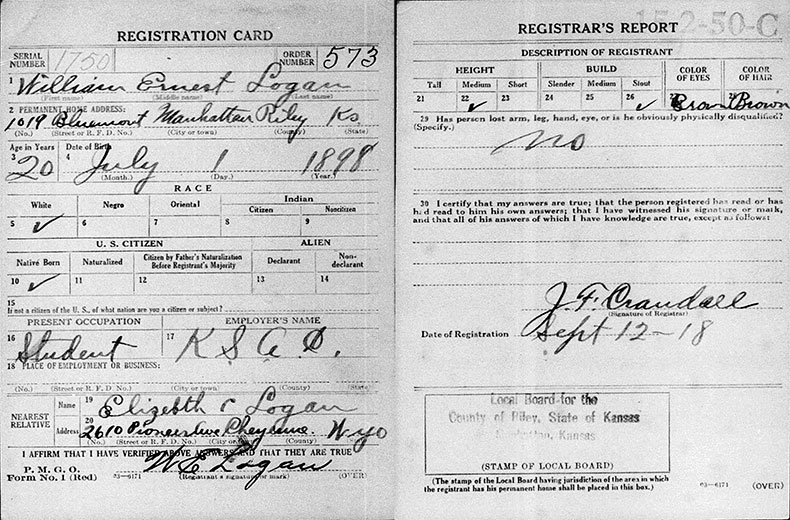 REGISTRATION CARD
SERIAL NUMBER 1750 ORDER NUMBER 573
1 William Ernest Logan
(First name) (Middle name) (Last name)
2 PERMANENT HOME ADDRESS:
1019 Bluemont Manhattan Riley Ks.
(No.) (Street or R. F. D. No.) (City or town) (County) (State)
Age in Years Date of Birth
3 20 4 July 1 1898
(Month.) (Day.) (Year.)
RACE
White Negro Oriental Indian
Citizen Noncitizen
5 ✓ 6 7 8 9
U. S. CITIZEN ALIEN
Native Born Naturalized Citizen by Father's Naturalization Before Registrant's Majority Declarant Non-declarant
10 ✓ 11 12 13 14
15
If not a citizen of the U. S., of what nation are you a citizen or subject?
PRESENT OCCUPATION EMPLOYER'S NAME
16 Student 17 K S A C.
18 PLACE OF EMPLOYMENT OR BUSINESS:
(No.) (Street or R. F. D. No.) (City or town) (County) (State)
NEAREST RELATIVE
Name 19 Elizebth r Logan
Address 20 2610 Pioneer Ave Cheyenne Wyo
(No.) (Street or R. F. D. No.) (City or (County) (State)
I AFFIRM THAT I HAVE VERIFIED ABOVE ANSWERS AND THAT THEY ARE TRUE
P. M. G. O.
Form No. 1 (Red) 03—6171 W E Logan
(Registrant's signature or mark) (OVER)
15-2-50-C
REGISTRAR'S REPORT
DESCRIPTION OF REGISTRANT
HEIGHT BUILD COLOR OF EYES COLOR OF HAIR
Tall Medium Short Slender Medium Stout
21 22 ✓ 23 24 25 26 ✓ 27 Brown 28 Brown
29 Has person lost arm, leg, hand, eye, or is he obviously physically disqualified?
(Specify.) No
30 I certify that my answers are true; that the person registered has read or has
had read to him his own answers; that I have witnessed his signature or mark,
and that all of his answers of which I have knowledge are true, except as follows:
J. F. Crandall
(Signature of Registrar)
Date of Registration Sept 12-18
Local Board for the
County of Riley, State of Kansas
Manhattan, Kansas
(STAMP OF LOCAL BOARD)
(The stamp of the Local Board having jurisdiction of the area in which
the registrant has his permanent home shall be placed in this box.)
03—6171 (OVER)